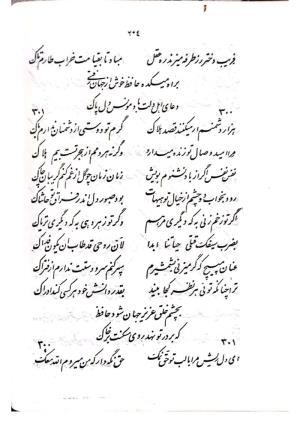 ۲۲۴
فریب دختر رز طرفه میزند ره عقل مباد تا بقیامت خراب طارم تاک
براه میکده حافظ خوش از جهان رفتی
دعای اهل دلت باد مونس دل پاک
۳۰۰ ۳۰۱
هزار دشمنم ار میکنند قصد هلاک گرم تو دوستی از دشمنان ندارم باک
مرا امید وصال تو زنده میدارد وگرنه هر دمم از هجر تست بیم هلاک
نفس نفس اگر از باد نشنوم بویش زمان زمان چو گل از غم کنم گریبان چاک
رود بخواب دو چشم از خیال تو هیهات بود صبور دل اندر فراق تو حاشاک
اگر تو زخم زنی به که دیگری مرهم وگر تو زهر دهی به که دیگری تریاک
بضرب سیفک قتلی حیاتنا ابدا لان روحی قد طاب ان یکون فداک
عنان مپیچ که گر میزنی بشمشیرم سپر کنم سر و دستت ندارم از فتراک
ترا چنانکه توئی هر نظر کجا بیند بقدر دانش خود هر کسی کند ادراک
بچشم خلق عزیز جهان شود حافظ
که بر در تو نهد روی مسکنت بر خاک
۳۰۱ ۳۰۰
ای دل ریش مرا با لب تو حق نمک حق نگه دار که من میروم الله معک